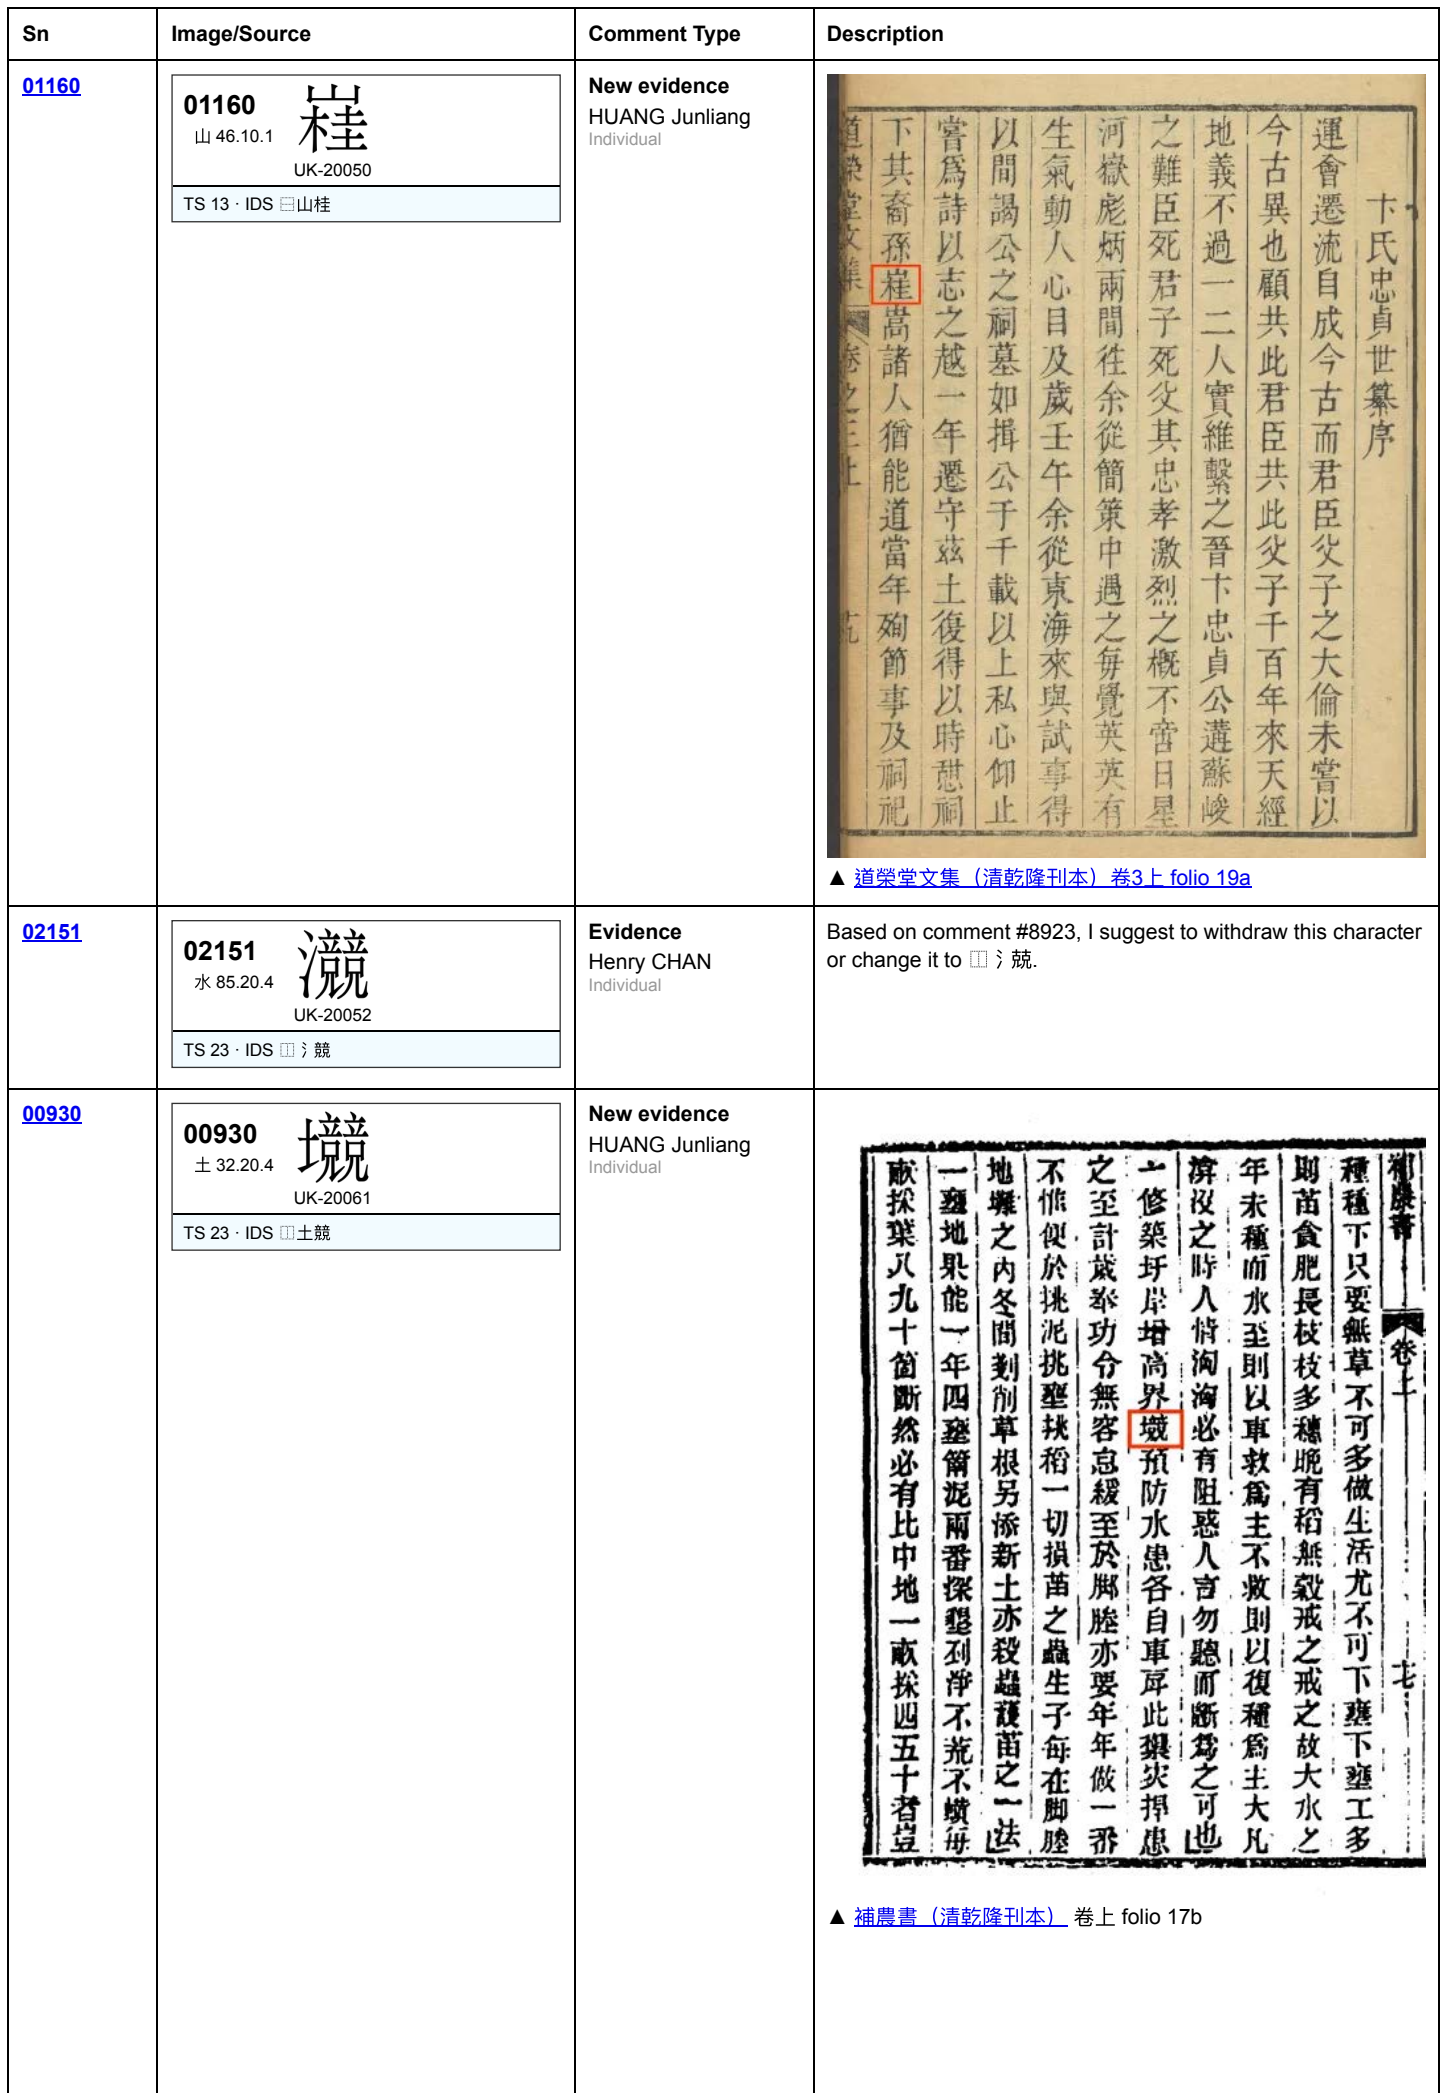 Sn Image/Source Comment Type Description
01160
01160
山 46.10.1
UK-20050
TS 13 · IDS ⿱山桂
New evidence
HUANG Junliang
Individual
卞氏忠貞世纂序
運會遷流自成今古而君臣父子之大倫未嘗以
今古異也顧共此君臣共此父子千百年來天經
地義不過一二人實維繫之晉卞忠貞公遘蘇峻
之難臣死君子死父其忠孝激烈之槪不啻日星
河嶽彪炳兩間徃余從簡策中遇之每覺英英有
生氣動人心目及歲壬午余從東海來與試事得
以間謁公之祠墓如揖公于千載以上私心仰止
嘗爲詩以志之越一年遷守茲土復得以時憇祠
下其裔孫𡹡嵩諸人猶能道當年殉節事及祠祀
道榮堂文集 卷之三上
▲ 道榮堂文集（清乾隆刊本）卷3上 folio 19a
02151
02151
水 85.20.4
UK-20052
TS 23 · IDS ⿰氵競
Evidence
Henry CHAN
Individual
Based on comment #8923, I suggest to withdraw this character
or change it to ⿰氵兢.
00930
00930
土 32.20.4
UK-20061
TS 23 · IDS ⿰土競
New evidence
HUANG Junliang
Individual
補農書 卷上 十七
種種下只要無草不可多做生活尤不可下壅下壅工多
則苗貪肥長枝枝多穗晩有稻無穀戒之戒之故大水之
年未種而水至則以車救爲主不救則以復種爲主大凡
渰沒之時人情洶洶必有阻惑人言勿聽而斷爲之可也
一修築圩岸增高界預防水患各自車戽此禦災捍患
之至計歲奉功令無容怠緩至於脚塍亦要年年做一番
不惟便於挑泥挑壅挑稻一切損苗之蟲生子每在脚塍
地灘之內冬間剗削草根另添新土亦殺蟲護苗之一法
一壅地果能一年四壅罱泥兩番深墾到淨不荒不蟥每
畝採葉八九十箇斷然必有比中地一畝採四五十者豈
▲ 補農書（清乾隆刊本） 卷上 folio 17b